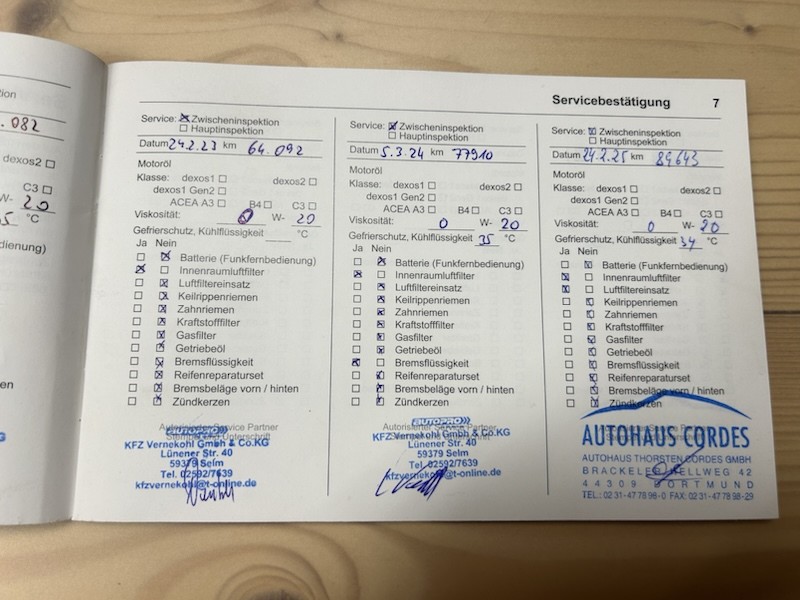 ion
. 082
dexos2 ☐
C3 ☐
W- 20
5 °C
dienung)
en
Servicebestätigung 7
Service: ☒ Zwischeninspektion
☐ Hauptinspektion
Datum 24.2.23 km 64.092
Motoröl
Klasse: dexos1 ☐ dexos2 ☐
dexos1 Gen2 ☐
ACEA A3 ☐ B4 ☐ C3 ☐
Viskosität: 0 W- 20
Gefrierschutz, Kühlflüssigkeit ____ °C
Ja Nein
☐ ☒ Batterie (Funkfernbedienung)
☒ ☐ Innenraumluftfilter
☐ ☒ Luftfiltereinsatz
☐ ☒ Keilrippenriemen
☐ ☒ Zahnriemen
☐ ☒ Kraftstofffilter
☐ ☒ Gasfilter
☐ ☒ Getriebeöl
☐ ☒ Bremsflüssigkeit
☐ ☒ Reifenreparaturset
☐ ☒ Bremsbeläge vorn / hinten
☐ ☒ Zündkerzen
Autorisierter Service Partner
AUTOPRO
KFZ Vernekohl GmbH & Co.KG
Stempel und Unterschrift
Lünener Str. 40
59379 Selm
Tel. 02592/7639
kfzvernekohl@t-online.de
Service: ☒ Zwischeninspektion
☐ Hauptinspektion
Datum 5.3.24 km 77910
Motoröl
Klasse: dexos1 ☐ dexos2 ☐
dexos1 Gen2 ☐
ACEA A3 ☐ B4 ☐ C3 ☐
Viskosität: 0 W- 20
Gefrierschutz, Kühlflüssigkeit 35 °C
Ja Nein
☐ ☒ Batterie (Funkfernbedienung)
☒ ☐ Innenraumluftfilter
☐ ☒ Luftfiltereinsatz
☐ ☒ Keilrippenriemen
☐ ☒ Zahnriemen
☐ ☒ Kraftstofffilter
☐ ☒ Gasfilter
☐ ☒ Getriebeöl
☒ ☐ Bremsflüssigkeit
☐ ☒ Reifenreparaturset
☐ ☒ Bremsbeläge vorn / hinten
☐ ☒ Zündkerzen
Autorisierter Service Partner
AUTOPRO
KFZ Vernekohl GmbH & Co.KG
Lünener Str. 40
59379 Selm
Tel. 02592/7639
kfzvernekohl@t-online.de
Service: ☒ Zwischeninspektion
☐ Hauptinspektion
Datum 24.2.25 km 89643
Motoröl
Klasse: dexos1 ☐ dexos2 ☐
dexos1 Gen2 ☐
ACEA A3 ☐ B4 ☐ C3 ☐
Viskosität: 0 W- 20
Gefrierschutz, Kühlflüssigkeit 34 °C
Ja Nein
☐ ☒ Batterie (Funkfernbedienung)
☒ ☐ Innenraumluftfilter
☒ ☐ Luftfiltereinsatz
☐ ☒ Keilrippenriemen
☐ ☒ Zahnriemen
☐ ☒ Kraftstofffilter
☐ ☒ Gasfilter
☐ ☒ Getriebeöl
☐ ☒ Bremsflüssigkeit
☐ ☒ Reifenreparaturset
☐ ☒ Bremsbeläge vorn / hinten
☐ ☒ Zündkerzen
Autorisierter Service
AUTOHAUS CORDES
AUTOHAUS THORSTEN CORDES GMBH
BRACKELER HELLWEG 42
44309 DORTMUND
TEL.: 02 31-47 78 98-0 FAX: 02 31-47 78 98-29